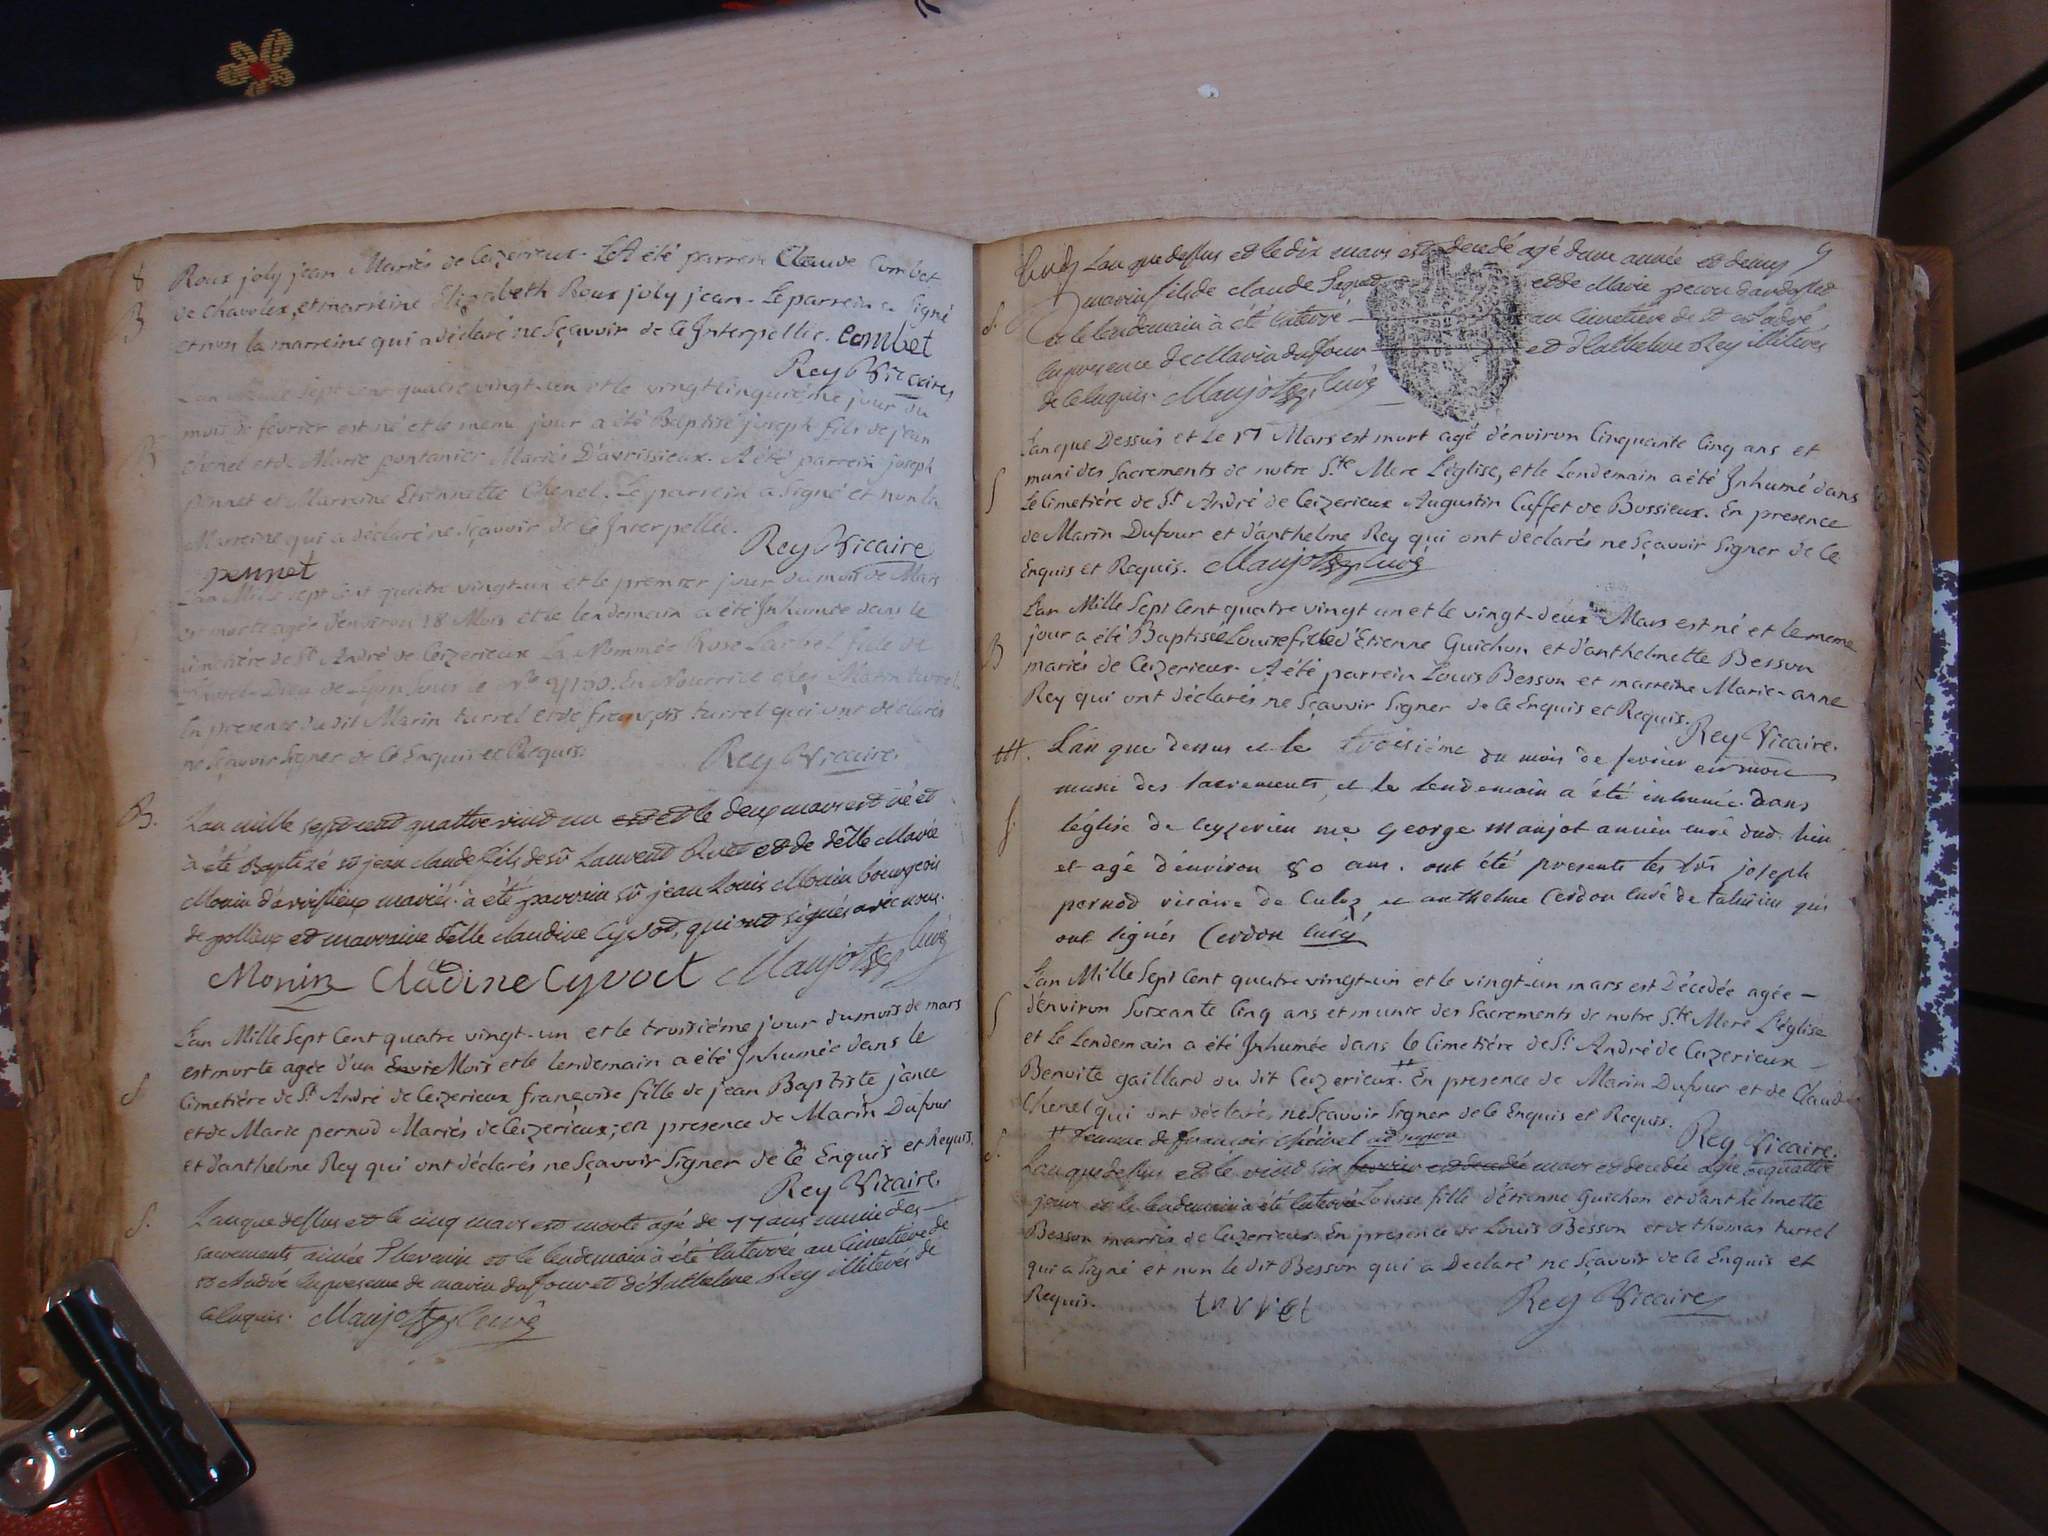 8
Roux joly jean Mariés de Ceizerieux. Et A été parrein Claude Combet
B
de Chavolex, et marreine Elizabeth Roux joly jean. Le parrein a Signé
et non la marreine qui a déclaré ne Sçavoir de ce Interpellée. Combet
Rey Vicaire
Lan Mille Sept Cent quatre vingt-un et le vingtcinquiéme jour du
mois de fevrier est né et le meme jour a été Baptisé joseph fils de jean
B
Chenel et de Marie pontanier Mariés D'avrissieux. A été parrein joseph
pennet et Marreine Etiennette Chenel. Le parrein a Signé et non la
Marreine qui a déclaré ne Sçavoir de ce Interpellée.
Rey Vicaire
pennet
Lan Mille Sept Cent quatre vingt-un et le premier jour du mois de Mars
est morte agée d'environ 18 Mois et le lendemain a été Inhumée dans le
Cimetiére de St André de Ceizerieux La Nommée Rose fille de
l'hotel-Dieu de Lyon Sous le No En Nourrice chés Marin turrel
En presence du dit Marin turrel et de françois turrel qui ont déclarés
ne Sçavoir Signer de ce Enquis et Requis.
Rey Vicaire.
B.
Lan mille sept cent quattre vint un est et le deux mars est né et
à été Baptizé sr jean claude fils de sr Laurent et de delle Marie
Monin d'avrissieux mariés. à été parrain sr jean Louis Monin bourgeois
de pollieux et marraine delle claudine Cyvoct, qui ont signés avec nous.
Monin Cladine Cyvoct Maujot curé
Lan Mille Sept Cent quatre vingt-un et le troisiéme jour du mois de mars
est morte agée d'un Envir Mois et le lendemain a été Inhumée dans le
S.
Cimetiére de St André de Ceizerieux françoise fille de jean Baptiste jance
et de Marie pernod Mariés de Ceizerieux, en presence de Marin Dufour
et d'anthelme Rey qui ont déclarés ne Sçavoir Signer de ce Enquis et Requis.
Rey Vicaire
S.
Lan que dessus et le cinq mars est morte agé de 77 ans munie des
sacrements aimée Thevenin et le lendemain à été enterrée au Cimetiere de
st André en presence de marin dufour et d'Anthelme Rey illiterés de
ce enquis. Maujot curé
9
Lan que dessus et le dix mars est decedé agé d'une année et demy
marin fils de claude et de Marie
S.
et le lendemain à été enterré au Cimetiere de st André
en presence de Marin dufour et d'Anthelme Rey illiterés
de ce enquis. Maujot curé
Lan que Dessus et Le 17 Mars est mort agé d'environ Cinquante Cinq ans et
muni des Sacrements de notre Ste Mere L'église, et le Lendemain a été Inhumé dans
S
Le Cimetiére de St André de Ceizerieux Augustin Caffet de Bossieux. En presence
de Marin Dufour et d'anthelme Rey qui ont déclarés ne Sçavoir Signer de ce
Enquis et Requis. Maujot curé
Lan Mille Sept Cent quatre vingt un et le vingt-deux Mars est né et le meme
jour a été Baptisée Louise fille d'Etienne Guichon et d'anthelmette Besson
B
mariés de Ceizerieux. A été parrein Louis Besson et marreine Marie-anne
Rey qui ont déclarés ne Sçavoir Signer de ce Enquis et Requis.
Rey Vicaire.
L'an que dessus et le troisiéme du mois de fevrier est mort
muni des sacrements, et le lendemain a été inhumé dans
S.
l'église de Ceyzerieu me George Maujot ancien curé dud. lieu
et agé d'environ 80 ans. ont été presents les srs joseph
pernod vicaire de Culoz et anthelme Cerdon curé de talissieu qui
ont signés Cerdon curé
Lan Mille Sept Cent quatre vingt-un et le vingt-un mars est Décedée agée
S
d'environ Soixante Cinq ans et munie des Sacrements de notre Ste Mere L'église
et Le Lendemain a été Inhumée dans le Cimetiére de St André de Ceizerieux
Benoite gaillard du dit Ceizerieux. # En presence de Marin Dufour et de Claude
Chenel qui ont déclarés ne Sçavoir Signer de ce Enquis et Requis.
# femme de françois Cheinel
Rey Vicaire.
S.
Lan que dessus et le vint six fevrier est decedée mars est decedée agée de quattre
jours et le lendemain a été enterrée Louise fille d'Etienne Guichon et d'anthelmette
Besson mariés de Ceizerieux En presence de Louis Besson et de thomas turrel
qui a Signé et non le dit Besson qui a Déclaré ne Sçavoir de ce Enquis et
Requis. turrel Rey Vicaire